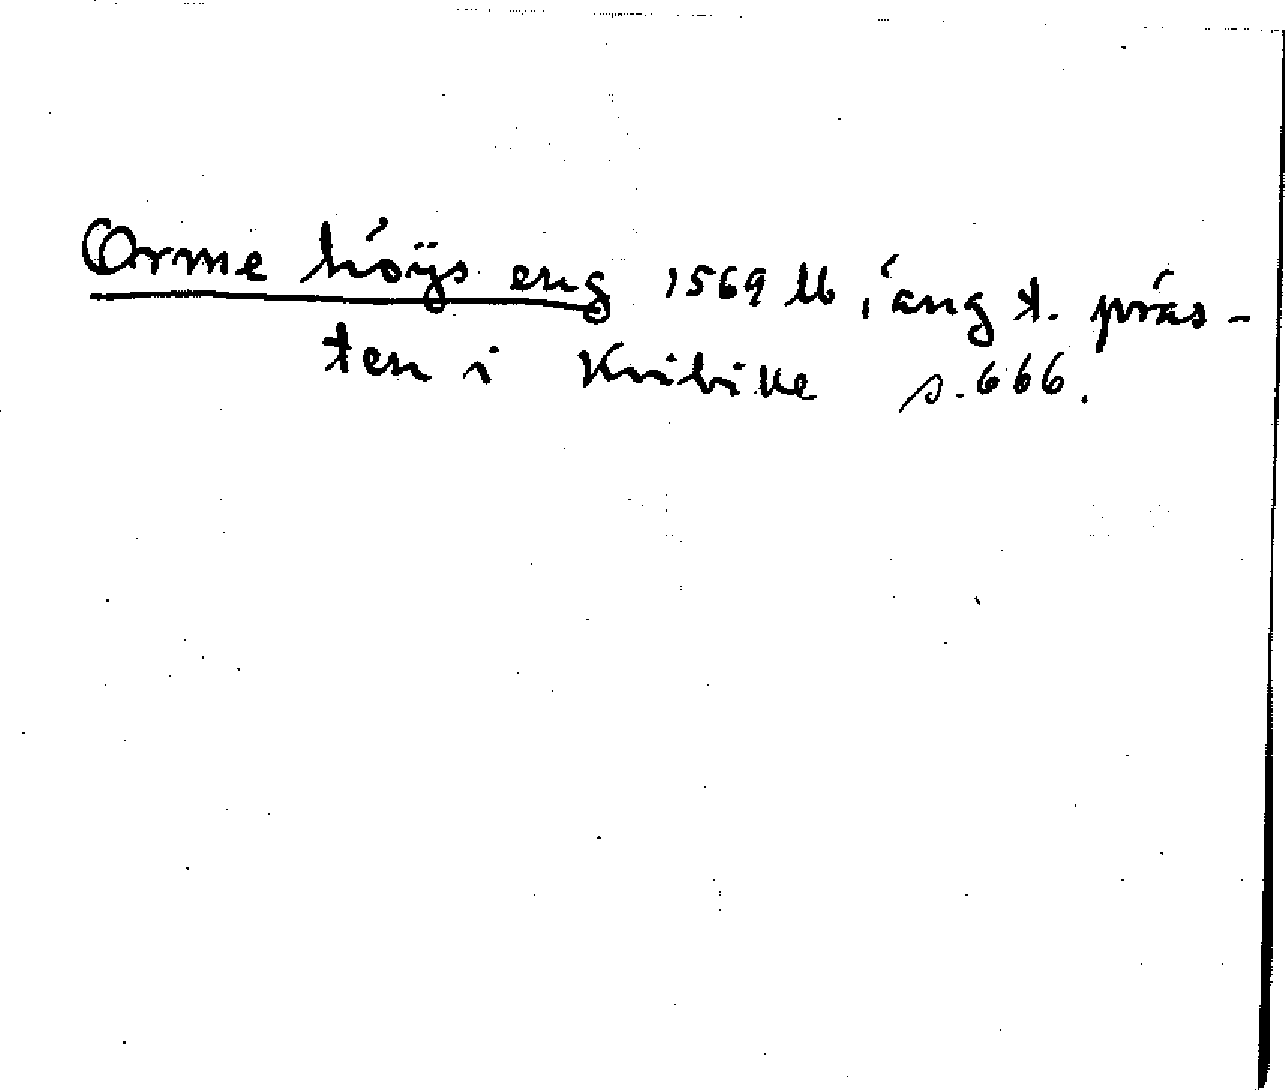 Orme höÿs eng 1569 Ub, äng t. präs-
ten i Kvibille s. 666.